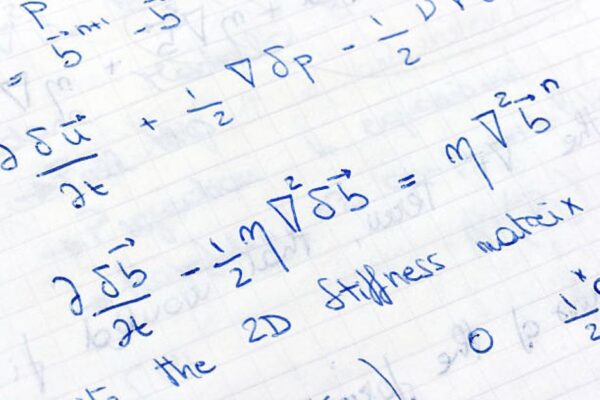 = b⃗ⁿ⁺¹ - b⃗
∂ δu⃗/∂t + 1/2 ∇δp - 1/2
∂ δb⃗/∂t - 1/2 η∇²δb⃗ = η∇²b⃗ⁿ
the 2D Stiffness matrix
) 0 1/2